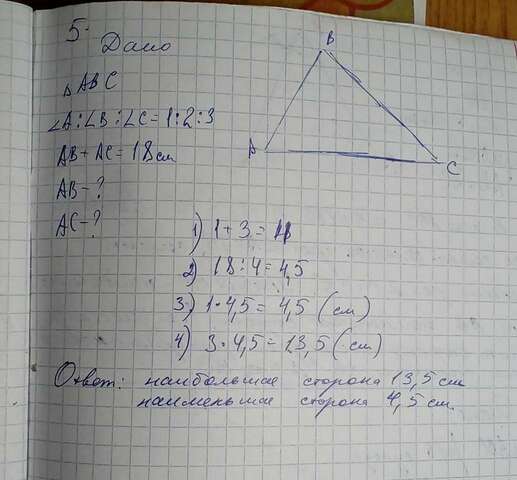 5. Дано
△ABC
∠A:∠B:∠C=1:2:3
AB+AC=18см
AB-?
AC-?
A
B
C
1) 1+3=4
2) 18:4=4,5
3) 1·4,5=4,5 (см)
4) 3·4,5=13,5(см)
Ответ: наибольшая сторона 13,5 см
наименьшая сторона 4,5 см.